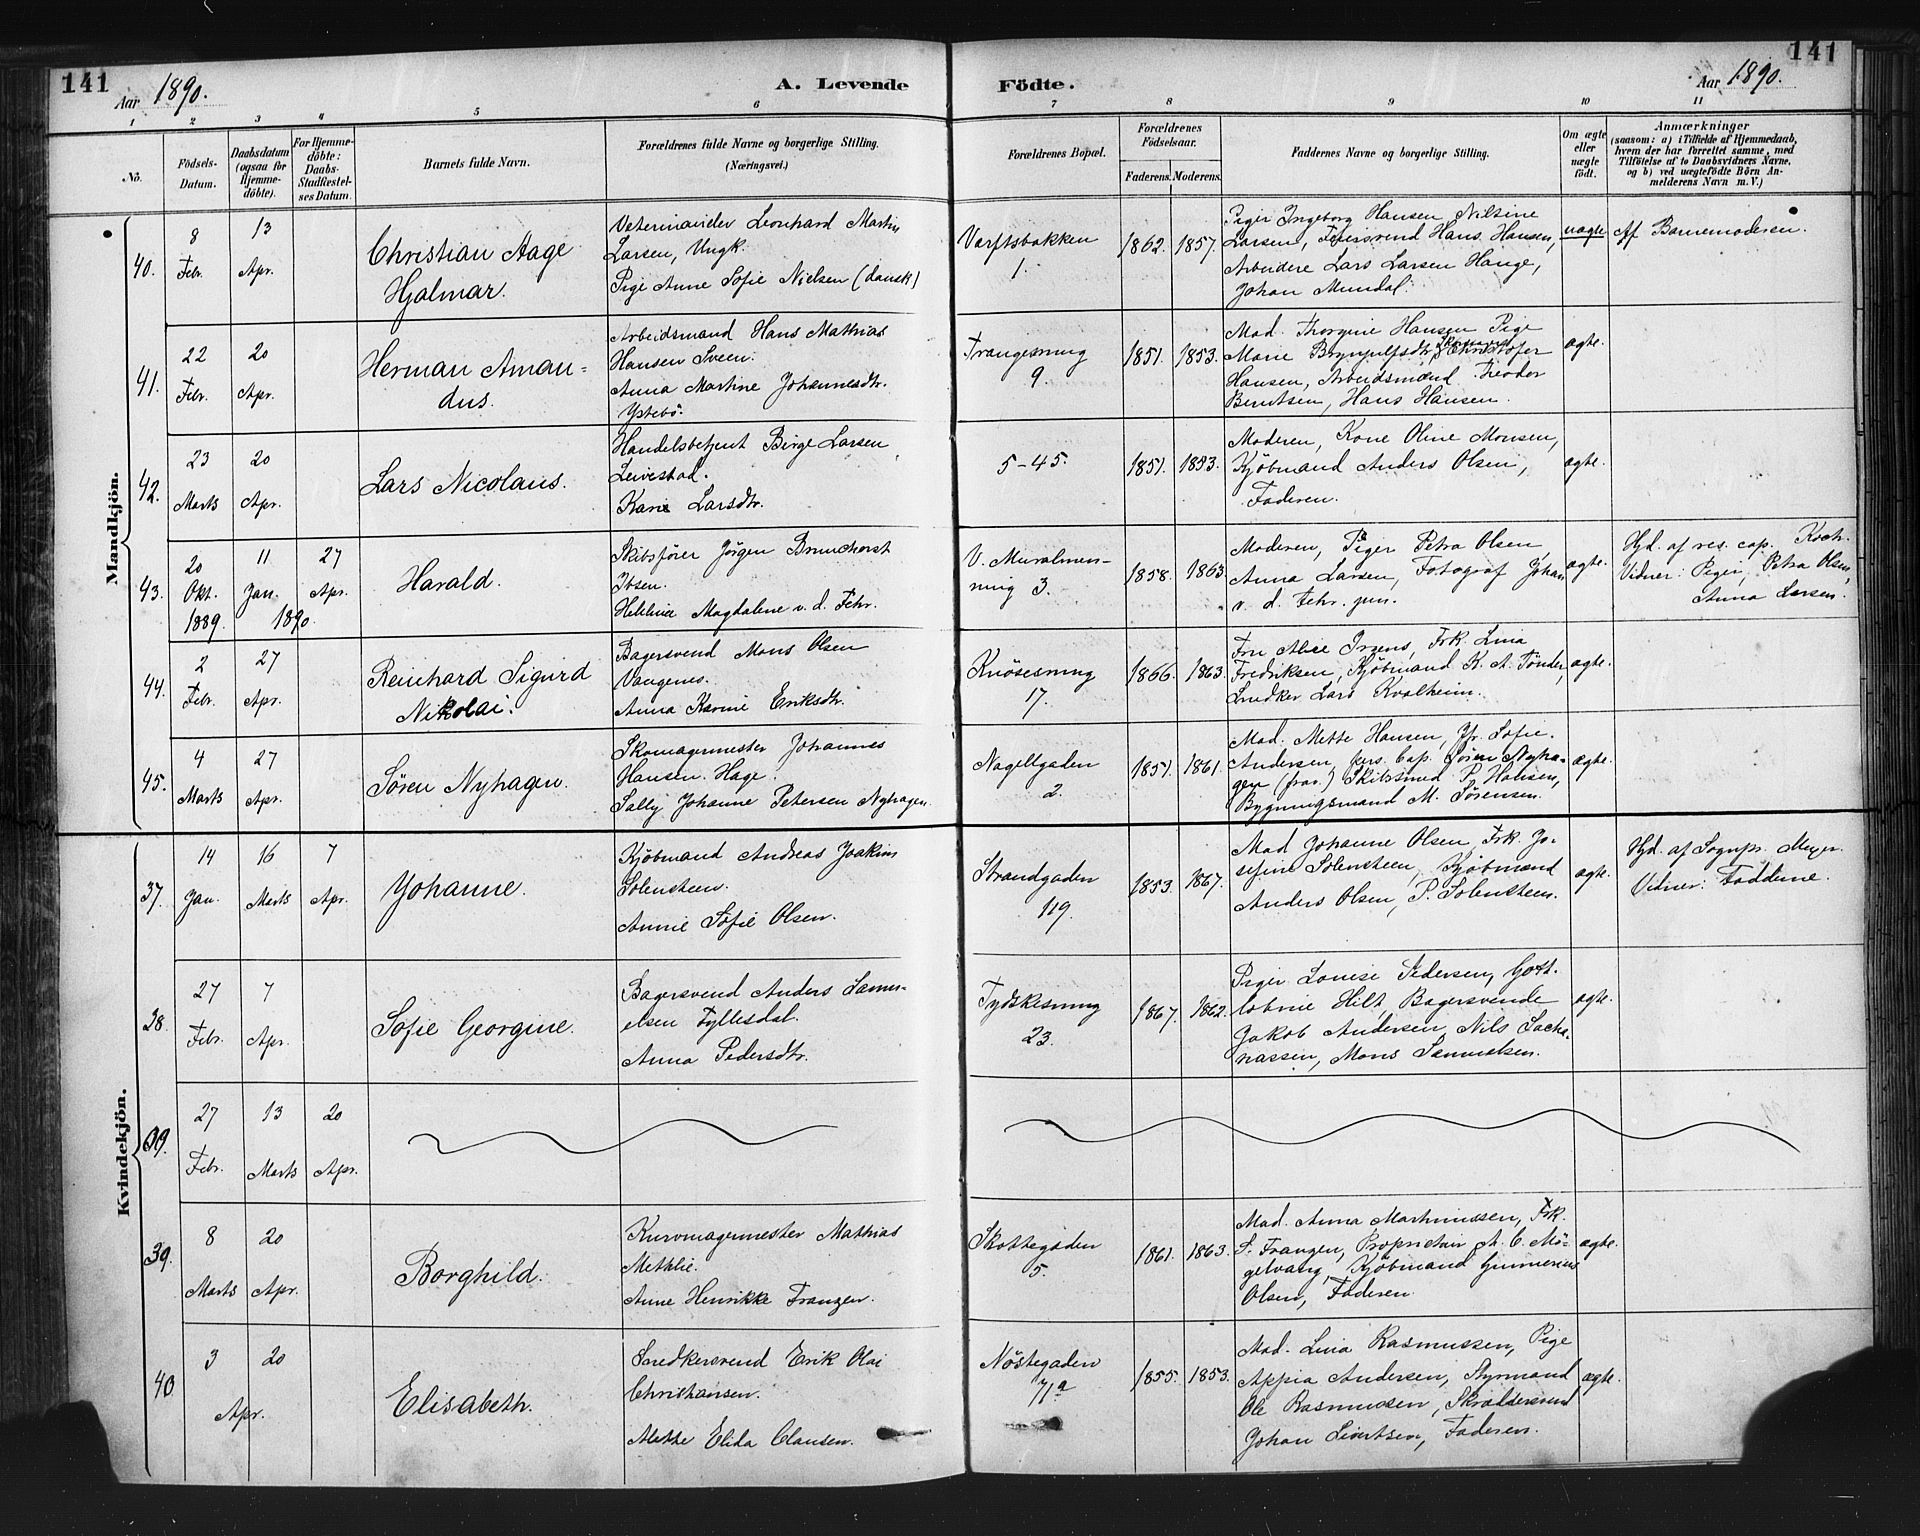 141
Aar 1890.
A. Levende Födte.
Aar 1890.
141
1 2 3 4 5 6 7 8 9 10 11
No.
Födsels-
Datum.
Daabsdatum
(ogsaa for
Hjemme-
döbte).
For Hjemme-
döbte:
Daabs-
Stadfæstel-
ses Datum.
Barnets fulde Navn.
Forældrenes fulde Navne og borgerlige Stilling.
(Næringsvei.)
Forældrenes Bopæl.
Forældrenes
Födselsaar.
Faderens. Moderens.
Faddernes Navne og borgerlige Stilling.
Om ægte
eller
uægte
födt.
Anmærkninger
(saasom: a) i Tilfælde af Hjemmedaab,
hvem der har forrettet samme, med
Tilföielse af to Daabsvidners Navne,
og b) ved uægtefödte Börn An-
melderens Navn m. V.)
Mandkjön.
40.
8
Febr.
13
Apr.
Christian Aage
Hjalmar.
Leonhard Martin
Larsen, Ungk.
Pige Anne Sofie Nielsen (dansk)
Værftsbakken
1.
1862. 1857.
Piger Ingeborg Hansen, Nilsine
Larsen, Hans Hansen,
Arbeidere Lars Larsen Hauge,
Johan Mundal.
uægte
Af Barnemoderen.
41.
22
Febr.
20
Apr.
Herman Aman-
dus.
Arbeidsmand Hans Mathias
Hansen Sveen.
Anna Martine Johannesdtr.
Ystebö.
Trangesmug
9.
1851. 1853.
Mad. Thorgine Hansen, Pige
Marie Brynjulfsdtr,
Hansen, Arbeidsmænd
Berntsen, Hans Hansen.
ægte.
42.
23
Marts
20
Apr.
Lars Nicolaus.
Handelsbetjent Börge Larsen
Leivestad.
Kari Larsdtr.
5-45.
1851. 1853.
Moderen, Kone Oline Monsen,
Kjöbmand Anders Olsen,
Faderen.
ægte.
43.
20
Okt.
1889.
11
Jan.
1890.
27
Apr.
Harald.
Skibsförer Jörgen Brunchorst
Ibsen.
Magdalene v. d. Fehr.
V. Muralmen-
ning 3.
1858. 1863.
Moderen, Piger Petra Olsen,
Anna Larsen, Fotograf Johan
v. d. Fehr. jun.
ægte.
Hjd. af res. cap. Koch.
Vidner: Piger, Petra Olsen,
Anna Larsen.
44.
2
Febr.
27
Apr.
Reinhard Sigurd
Nikolai.
Bagersvend Mons Olsen
Vangenes.
Anna Karine Eriksdtr.
Knösesmug
17.
1866. 1863.
Fru Alise Frk. Lina
Fredriksen, Kjöbmand K. A. Tönder,
Snedker Lars Kvalheim.
ægte.
45.
4
Marts
27
Apr.
Sören Nyhagen.
Skomagermester Johannes
Hansen Hage.
Sally Johanne Petersen Nyhagen.
Nagellgaden
2.
1851. 1861.
Mad. Mette Hansen, Jfr. Sofie
Andersen, pers. Cap. Sören Nyha-
gen (frav.) Skibssmed P. Hansen,
Bygningsmand M. Sörensen.
ægte.
Kvindekjön.
37.
14
Jan.
16
Marts
7
Apr.
Johanne.
Kjöbmand Andreas Joakim
Solensteen.
Annie Sofie Olsen.
Strandgaden
119.
1853. 1867.
Mad. Johanne Olsen, Frk. Jo-
sefine Solensteen, Kjöbmænd
Anders Olsen, P. Solensteen.
ægte.
Hjd. af Sognpr. Meyer.
Vidner: Fadderne.
38.
27
Febr.
7
Apr.
Sofie Georgine.
Bagersvend Anders Samu-
elsen Fyllesdal.
Anna Pedersdtr.
Tydskesmug
23.
1867. 1862.
Piger Louise Pedersen, Gott-
lobine Hilt, Bagersvende
Jakob Andersen, Nils Sacha-
riassen, Mons Samuelsen.
ægte.
39.
27
Febr.
13
Marts
20
Apr.
39.
8
Marts
20
Apr.
Borghild.
Kurvmagermester Mathias
Methlie.
Anne Henrikke Franzen.
Skottegaden
5.
1861. 1863.
Mad. Anna Martinussen, Frk.
S. Franzen, Proprietær A. C. Mö-
gelvang, Kjöbmand Gunnerius
Olsen, Faderen.
ægte.
40
3
Apr.
20
Elisabeth.
Snedkersvend Erik Olai
Christiansen.
Mette Elida Clausen.
Nöstegaden
71a
1855. 1853.
Mad. Lina Rasmussen, Pige
Appia Andersen, Styrmand
Ole Rasmussen, Skræddersvend
Johan Sivertsen, Faderen.
ægte.